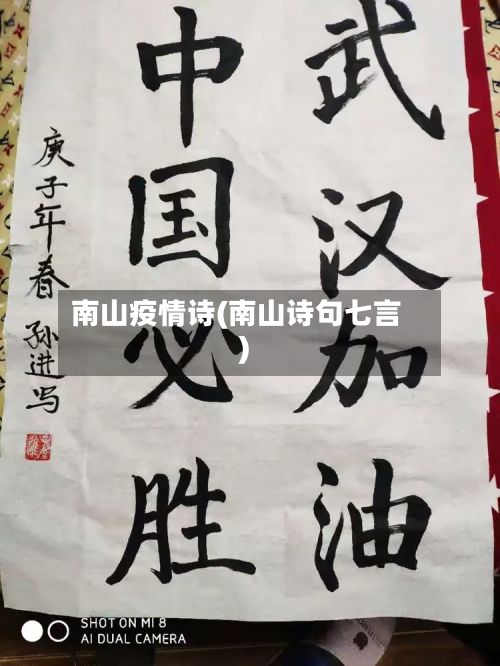 武汉加油
中国必胜
庚子年春 孙进写
南山疫情诗(南山诗句七言
)
SHOT ON MI 8
AI DUAL CAMERA